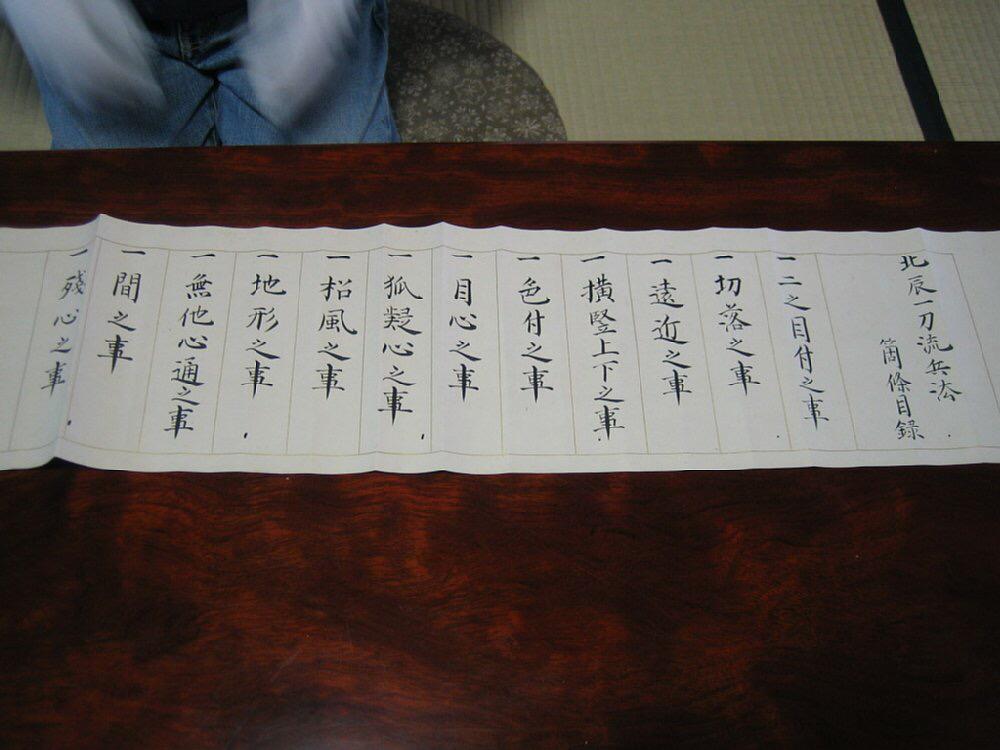 北辰一刀流兵法
箇條目録
一二之目付之事
一切落之事
一遠近之事
一横竪上下之事
一色付之事
一目心之事
一狐疑心之事
一松風之事
一地形之事
一無他心通之事
一間之事
一残心之事